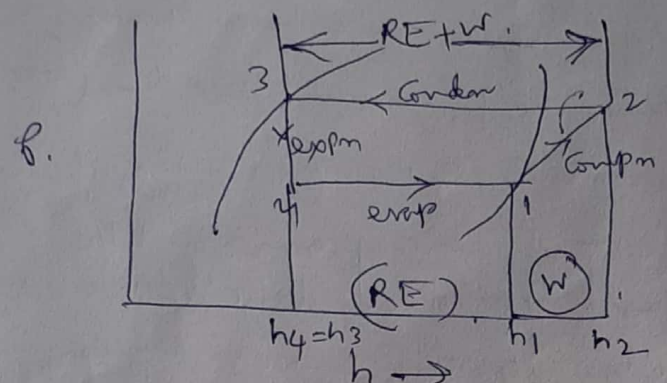 RE+W.
3
Conden
2
P.
expn
Compn
4
evap
1
(RE)
W
h4=h3
h1
h2
h →